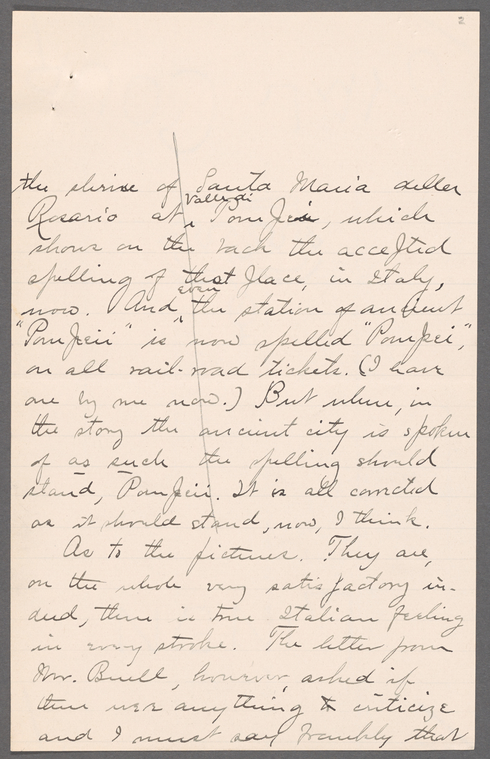 2
the shrine of Santa Maria deller
Rosario at Valle di Pompei, which
shows on the back the accepted
spelling of that place, in Italy,
now. And, even the station of ancient
"Pompeii" is now spelled "Pompei",
on all rail-road tickets. (I have
one by me now.) But when, in
the story the ancient city is spoken
of as such the spelling should
stand, Pompeii. It is all corrected
as it should stand, now, I think.
As to the pictures. They are,
on the whole very satisfactory in-
deed, there is true Italian feeling
in every stroke. The letter from
Mr. Buell, however, asked if
there was anything to criticize
and I must say frankly that